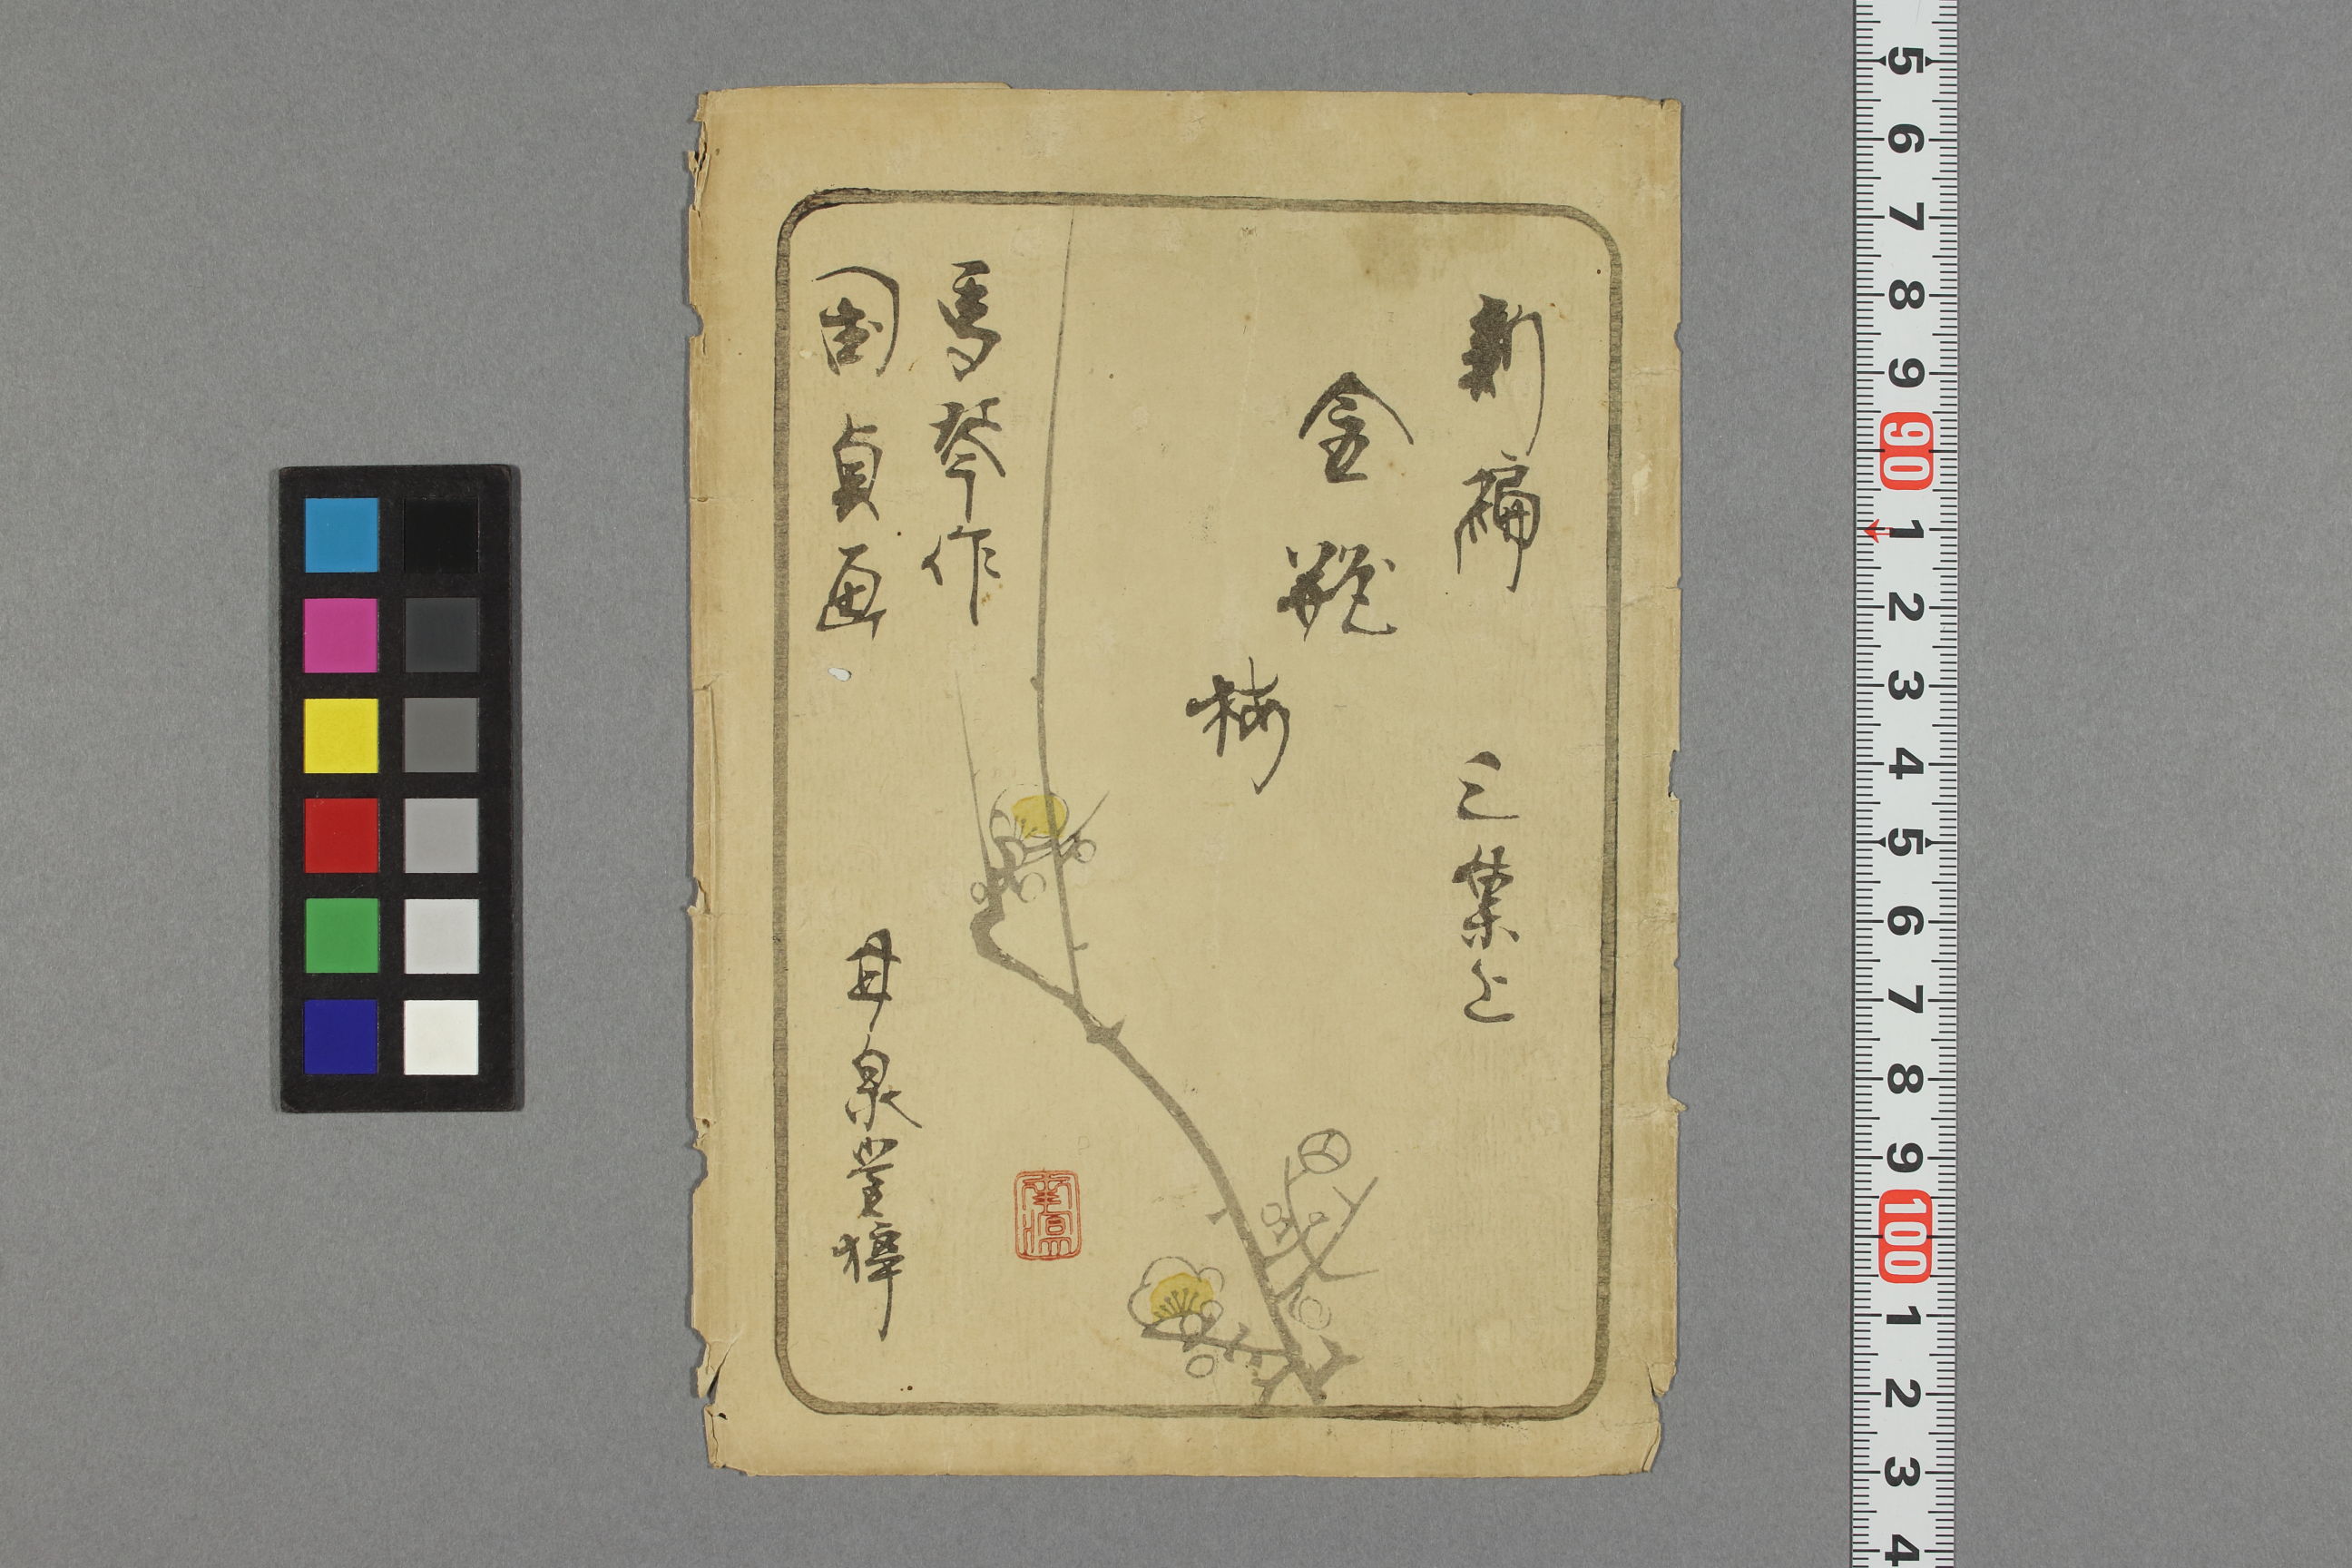 新編 三集上
金瓶
梅
馬琴作
国貞画
甘泉堂梓
5
6
7
8
9
90
1
2
3
4
5
6
7
8
9
100
1
2
3
4